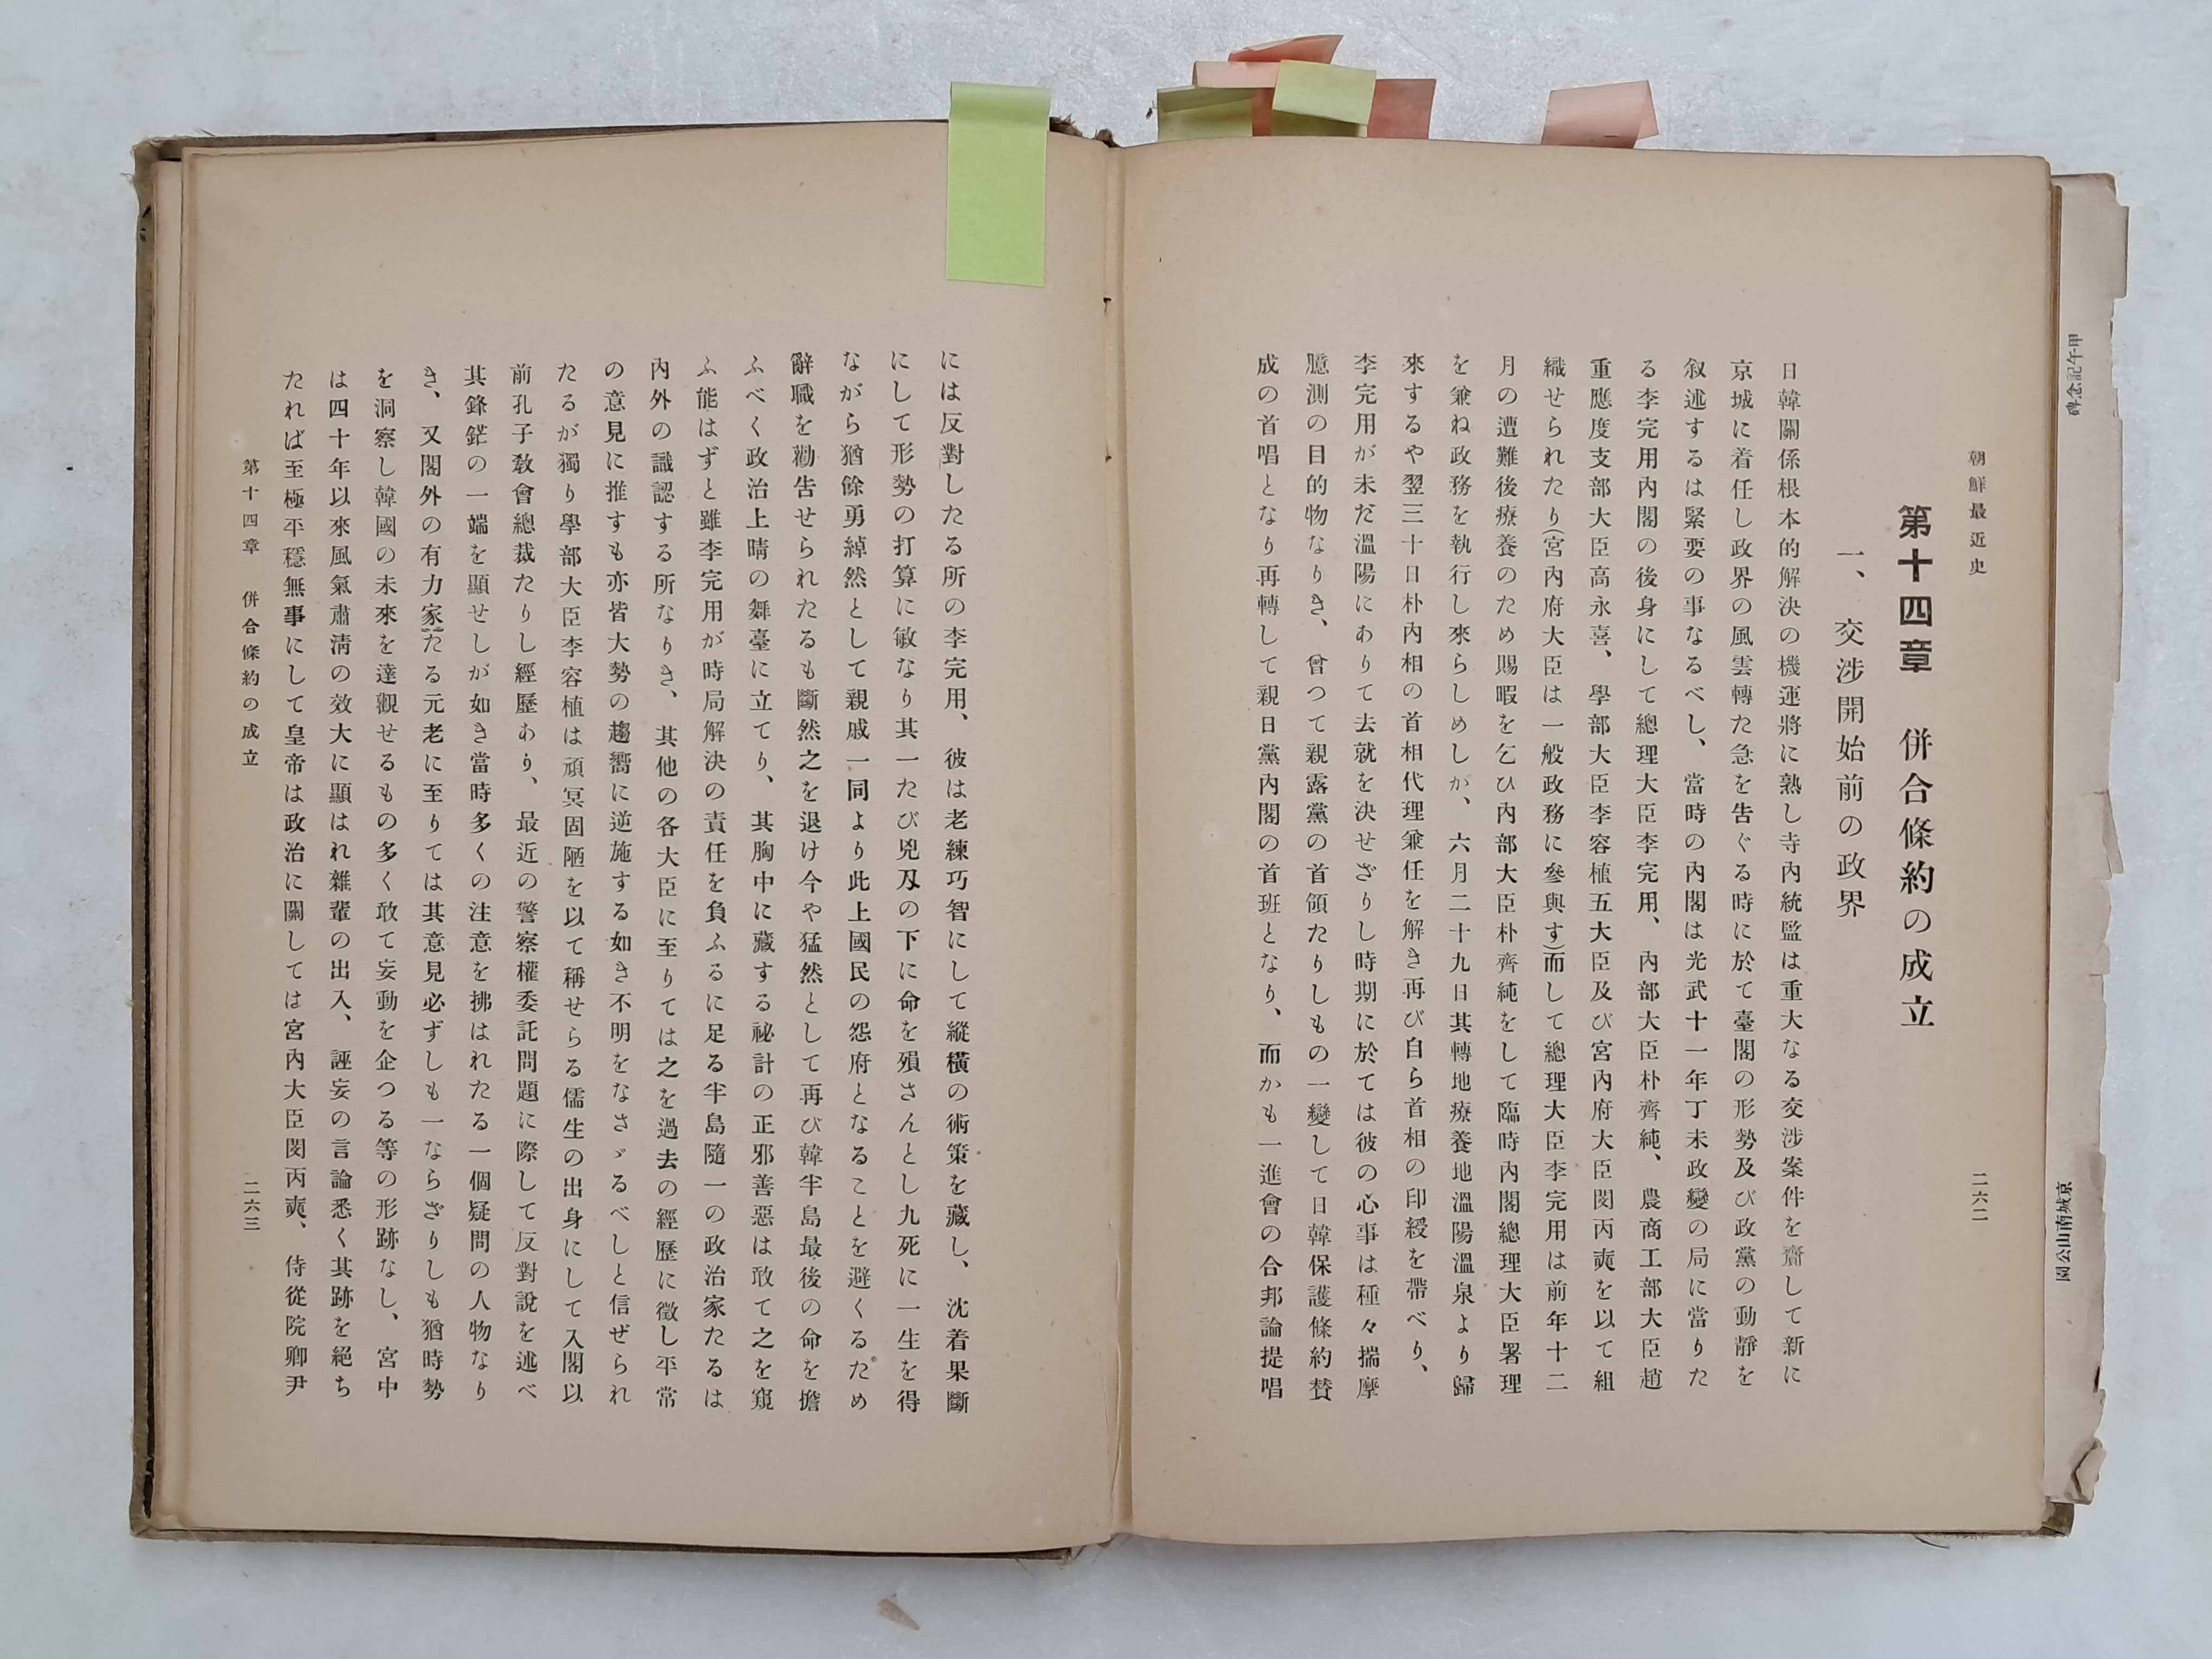 朝鮮最近史
二六二
第十四章　併合條約の成立
一、交涉開始前の政界
日韓關係根本的解決の機運將に熟し寺內統監は重大なる交涉案件を齎して新に
京城に着任し政界の風雲轉た急を吿ぐる時に於て臺閣の形勢及び政黨の動靜を
叙述するは緊要の事なるべし、當時の內閣は光武十一年丁未政變の局に當りた
る李完用內閣の後身にして總理大臣李完用、內部大臣朴齊純、農商工部大臣趙
重應度支部大臣高永喜、學部大臣李容植五大臣及び宮內府大臣閔丙奭を以て組
織せられたり(宮內府大臣は一般政務に參與す)而して總理大臣李完用は前年十二
月の遭難後療養のため賜暇を乞ひ內部大臣朴齊純をして臨時內閣總理大臣署理
を兼ね政務を執行し來らしめしが、六月二十九日其轉地療養地溫陽溫泉より歸
來するや翌三十日朴內相の首相代理兼任を解き再び自ら首相の印綬を帶べり、
李完用が未だ溫陽にありて去就を決せざりし時期に於ては彼の心事は種々揣摩
臆測の目的物なりき、曾つて親露黨の首領たりしもの一變して日韓保護條約賛
成の首唱となり再轉して親日黨內閣の首班となり、而かも一進會の合邦論提唱
には反對したる所の李完用、彼は老練巧智にして縱橫の術策を藏し、沈着果斷
にして形勢の打算に敏なり其一たび兇刄の下に命を殞さんとし九死に一生を得
ながら猶餘勇綽然として親戚一同より此上國民の怨府となることを避くるため
辭職を勸吿せられたるも斷然之を退け今や猛然として再び韓半島最後の命を擔
ふべく政治上晴の舞臺に立てり、其胸中に藏する祕計の正邪善惡は敢て之を窺
ふ能はずと雖李完用が時局解決の責任を負ふるに足る半島隨一の政治家たるは
內外の識認する所なりき、其他の各大臣に至りては之を過去の經歷に徵し平常
の意見に推すも亦皆大勢の趨嚮に逆施する如き不明をなさゞるべしと信ぜられ
たるが獨り學部大臣李容植は頑冥固陋を以て稱せらる儒生の出身にして入閣以
前孔子敎會總裁たりし經歷わり、最近の警察權委託問題に際して反對說を述べ
其鋒鋩の一端を顯せしが如き當時多くの注意を拂はれたる一個疑問の人物なり
き、又閣外の有力家たる元老に至りては其意見必ずしも一ならざりしも猶時勢
を洞察し韓國の未來を達觀せるもの多く敢て妄動を企つる等の形跡なし、宮中
は四十年以來風氣肅淸の效大に顯はれ雜輩の出入、誣妄の言論悉く其跡を絕ち
たれば至極平穩無事にして皇帝は政治に關しては宮內大臣閔丙奭、侍從院卿尹
第十四章　併合條約の成立
二六三
甲午記念碑
京城南山公園